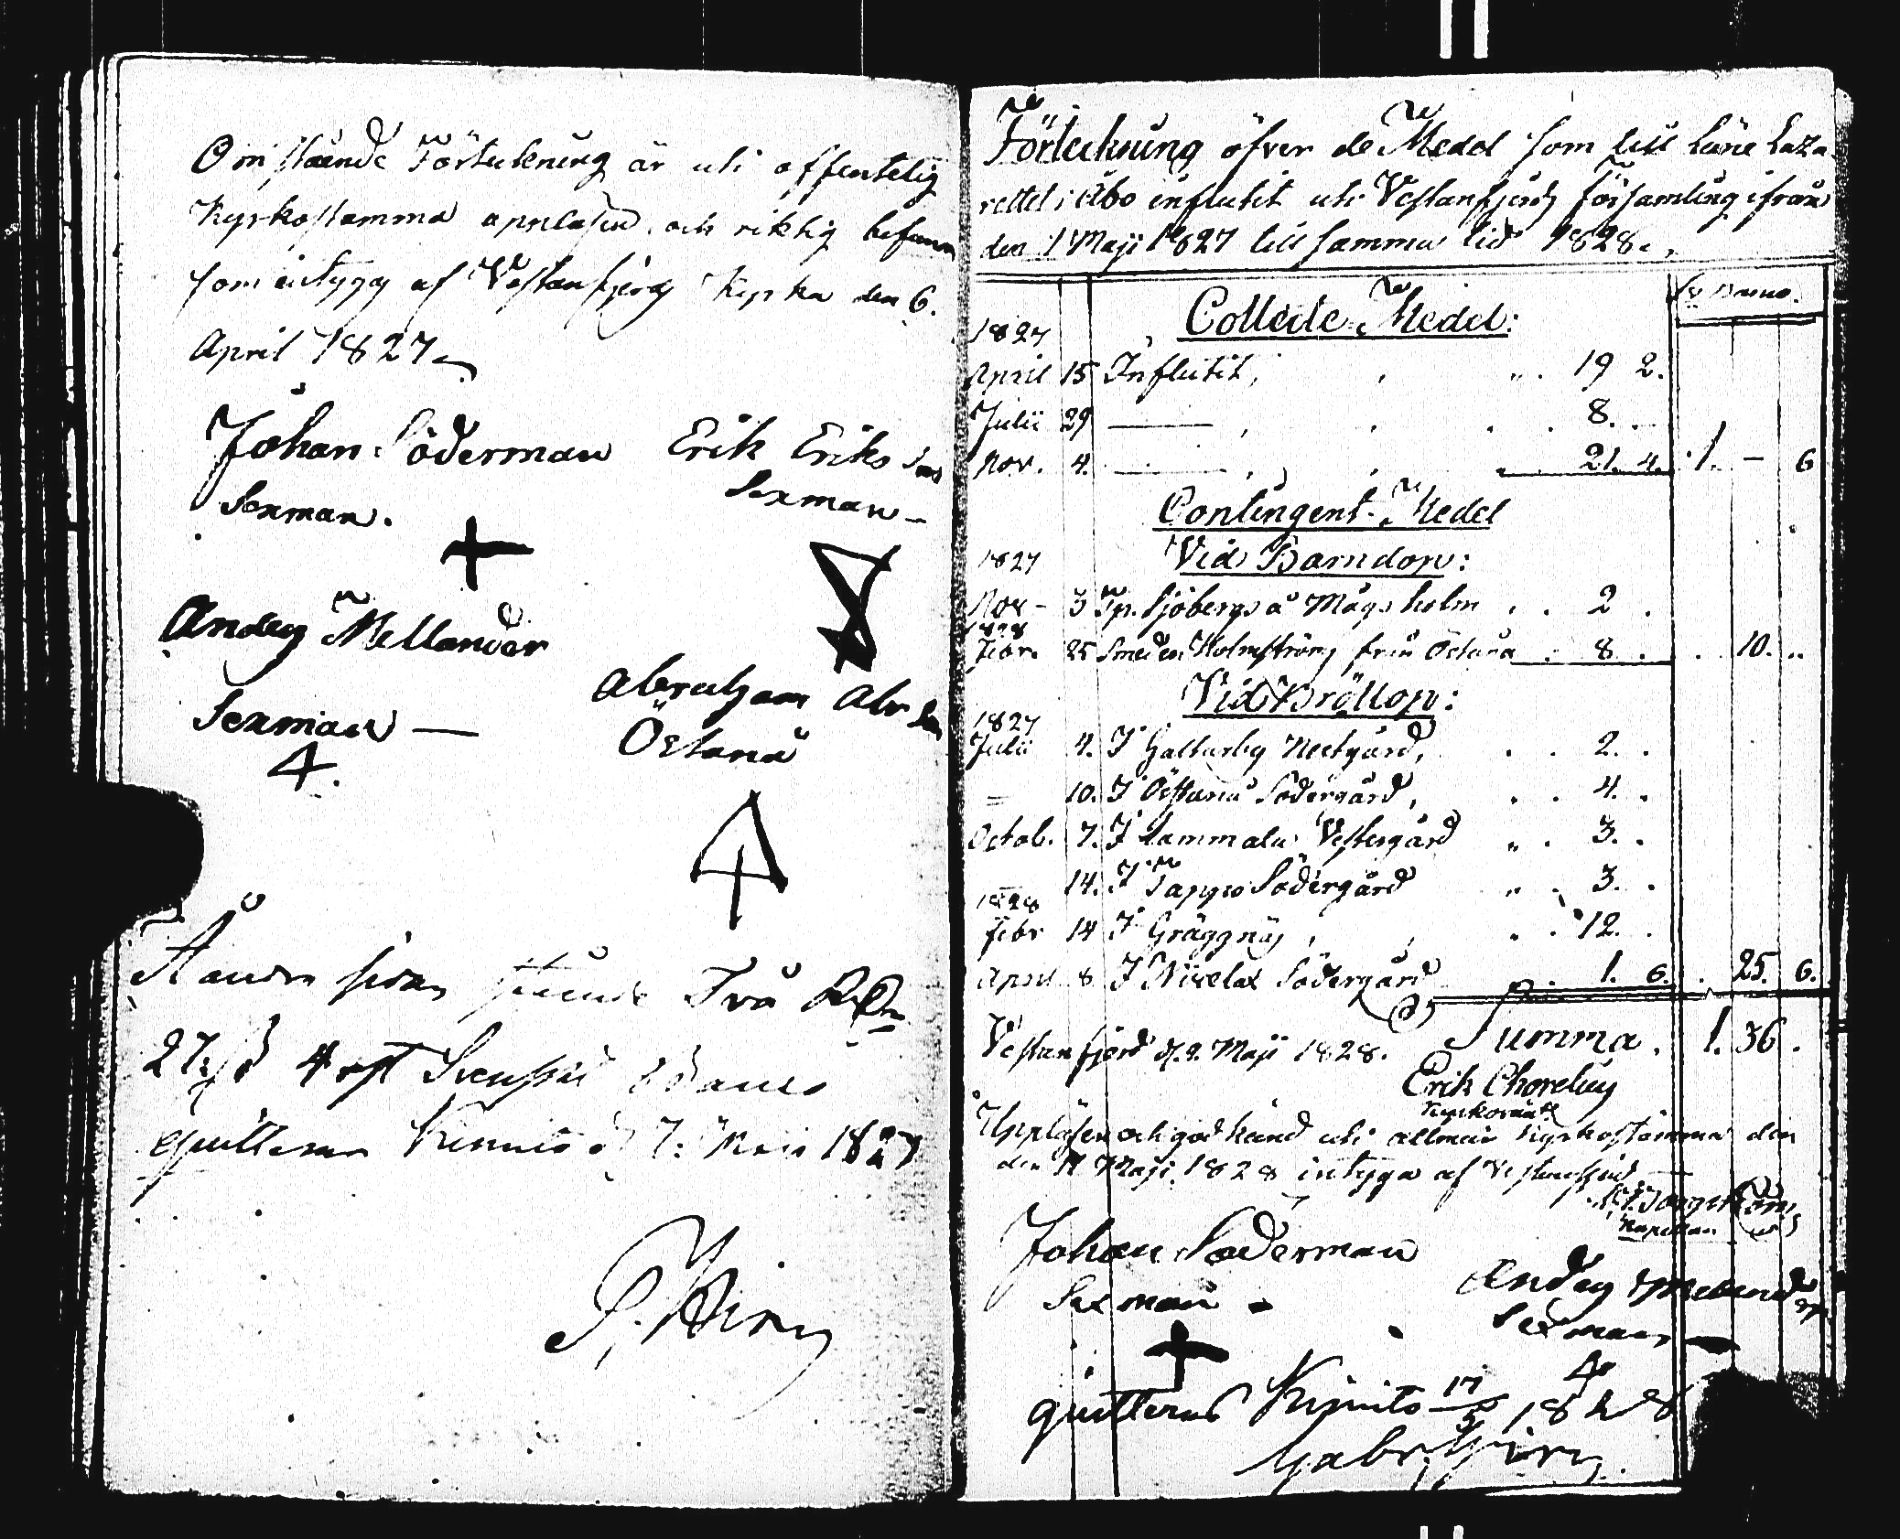 Omstående Förteckning är uti offentelig
Kyrkostamma opplasen och riktig befunnen
som intygas af Vestanfjerds Kyrka den 6.
April 1827
Johan Söderman
Sexman.
Erik Eriks Son
Sexman
Anders Mellander
Sexman
Abraham Abr Son
Östanå
Å andra sidan stående Två RD
27 s 4 rst Svenska Banco
quitteras Kimito d 7: Maii 1827
Förteckning öfver de Medel som till Läne Laza-
rettet i Åbo influtit uti Vestanfjerds församling ifrån
den 1 Maji 1827 till samma tid 1828.
Sv Banco.
Collecte Medel:
1827
April 15 Influtit, 19 2.
Julii 29 — 8.
Nov. 4. — 21. 4. 1. — 6
Contingent-Medel
Vid Barndop:
1827
Nov - 3 Sjöbergs å Mågsholm 2
1828
Febr. 25 Smeden Holmströms från Östanå 8 10.
Vid Bröllop:
1827
Julii 4. I Galtarby Nedgård, 2.
— 10. I Östanå Södergård, 4.
Octob. 7. I Lammala Vestergård 3.
— 14. I Pappo Södergård 3.
1828
Febr 14 I Gräggnäs, 12.
April 8 I Nivelax Södergård 1. 6. 25. 6.
Vestanfjerd d. 2. Maji 1828. Summa. 1. 36.
Erik Chorelius
Kyrkovärd
Uppläsen och godkänd uti allmän Kyrkostämma den
den 11 Maji 1828 intyga af Vestanfjerd
Kapellan
Johan Söderman
Sexman
Anders Mellander
Sexman
quitteras Kimito 17/5 1828